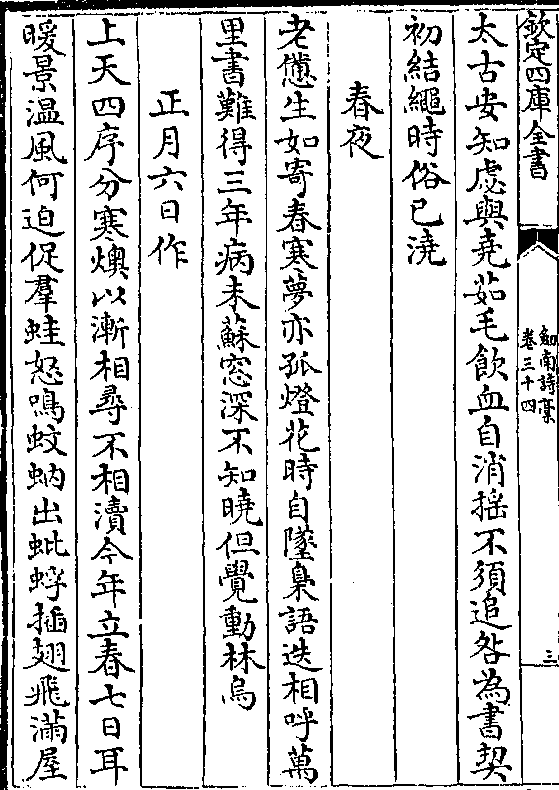 欽定四庫全書
劍南詩藁
卷三十四
三
太古安知虙與堯茹毛飲血自消揺不須追咎為書契
初結繩時俗已澆
春夜
老憊生如寄春寒夢亦孤燈花時自墜梟語迭相呼萬
里書難得三年病未蘇窓深不知曉但覺動林烏
正月六日作
上天四序分寒燠以漸相尋不相瀆今年立春七日耳
暖景温風何迫促羣蛙怒鳴蚊蚋出蚍蜉插翅飛滿屋